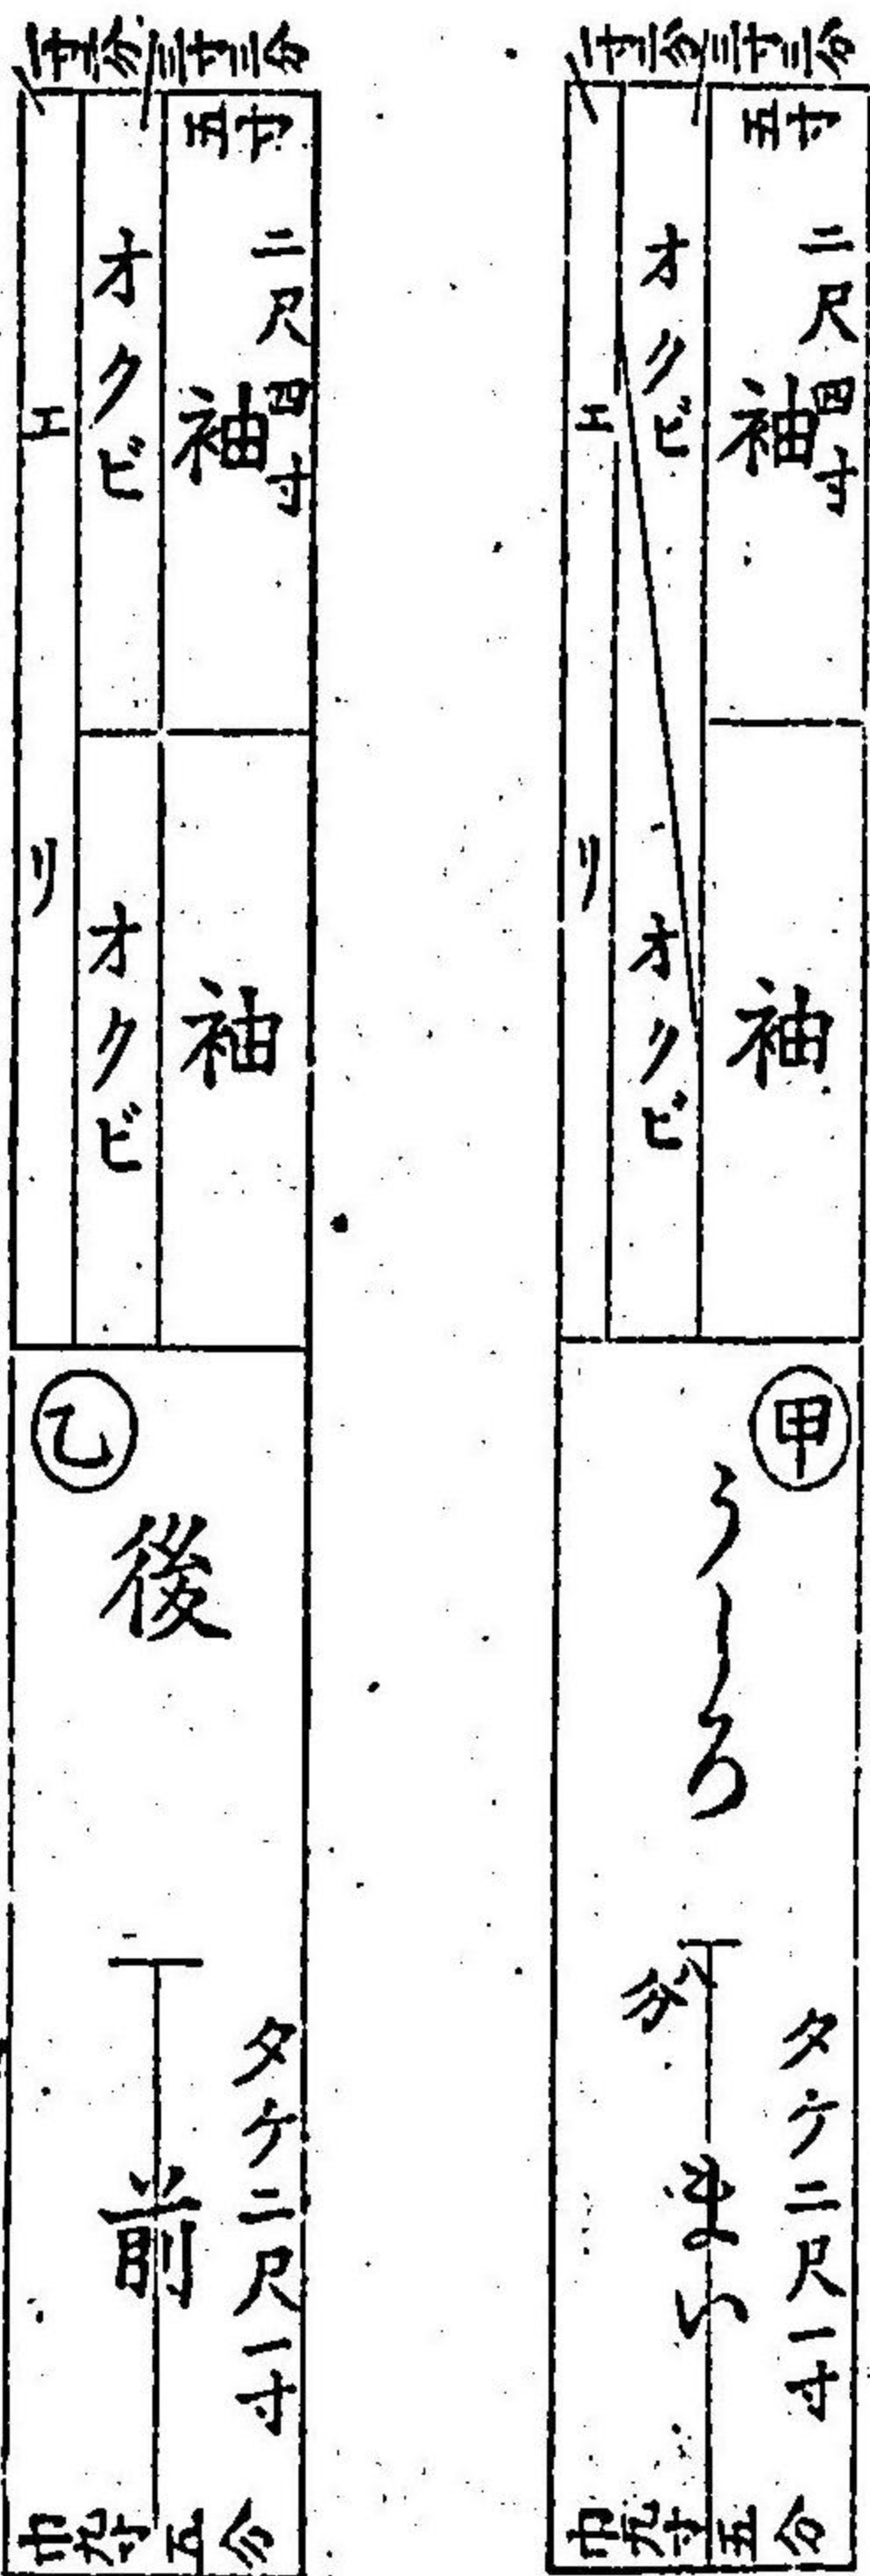 一寸二分
三寸三分
五寸
二尺四寸
袖
オクビ
エリ
袖
オクビ
甲
うしろ
八分
まい
タケ二尺一寸
巾九寸五分
五寸
二尺四寸
袖
オクビ
エリ
袖
オクビ
乙
後
前
タケ二尺一寸
巾九寸五分